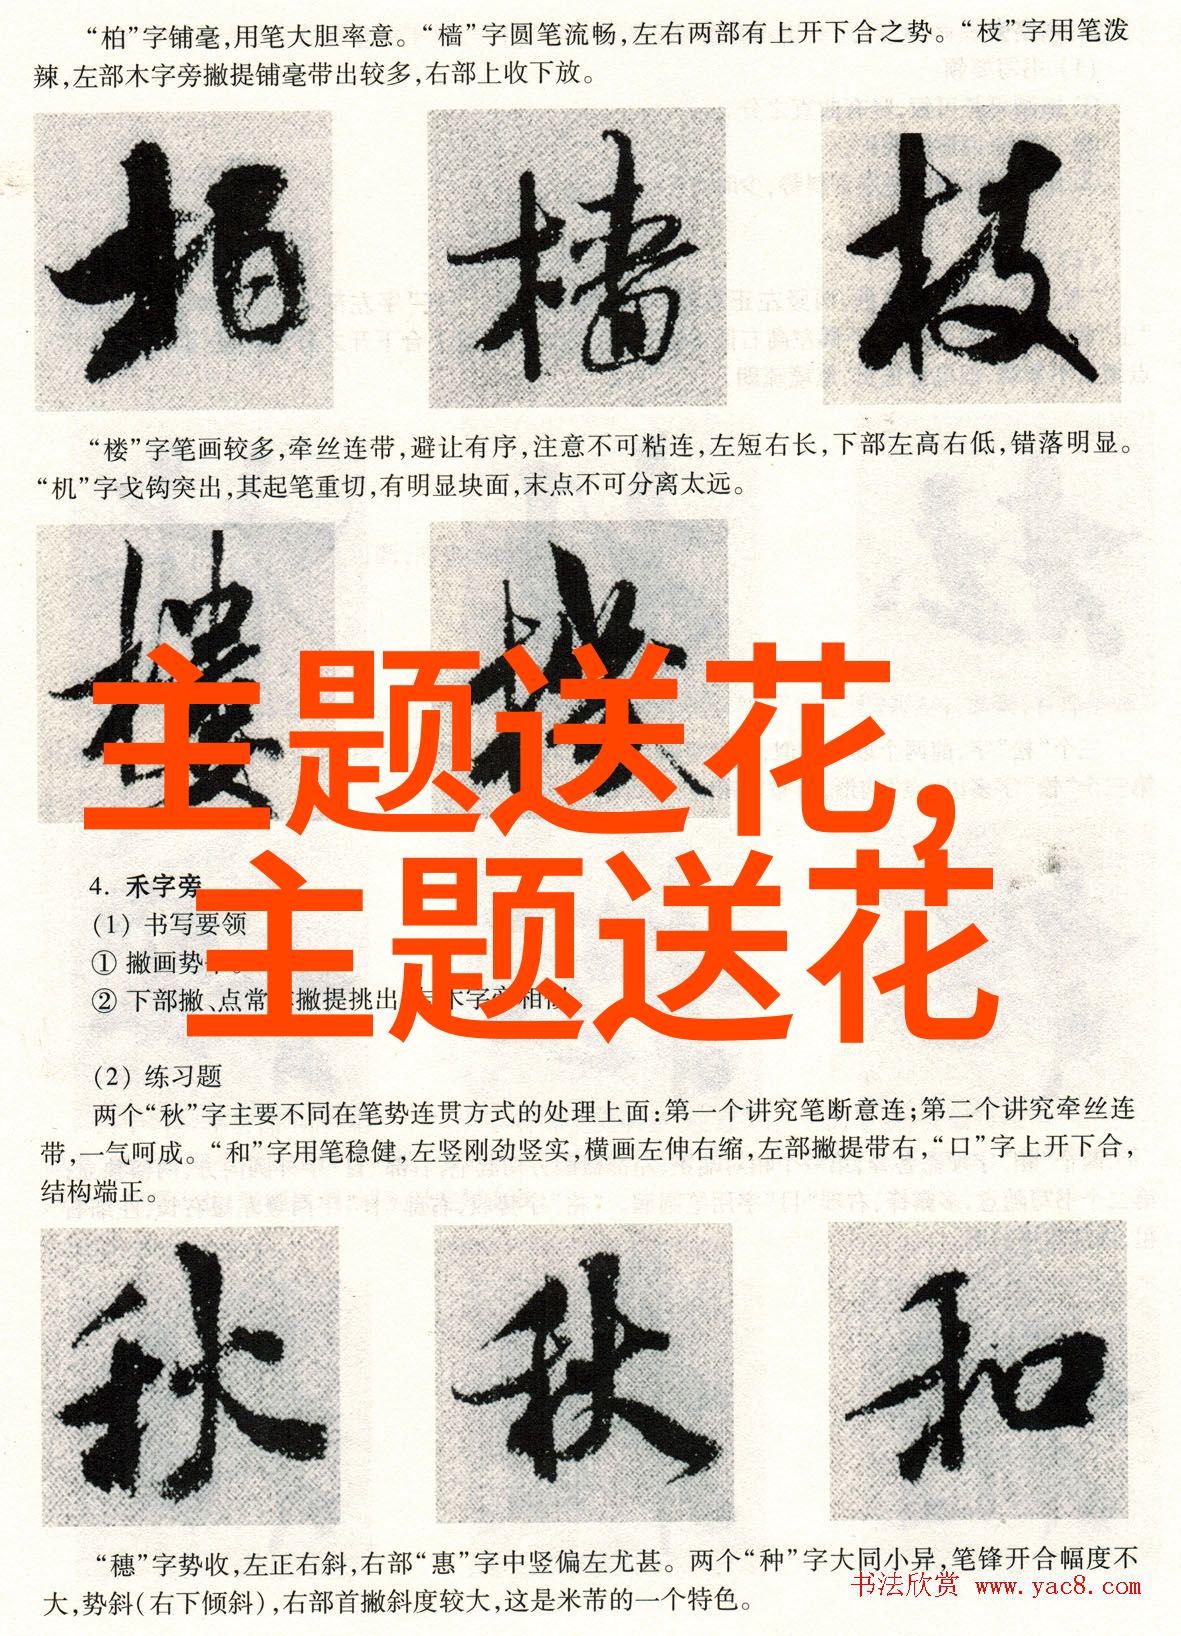 “柏”字铺毫,用笔大胆率意。“樯”字圆笔流畅,左右两部有上开下合之势。“枝”字用笔泼
辣,左部木字旁撇提铺毫带出较多,右部上收下放。
柏 樯 枝
“楼”字笔画较多,牵丝连带,避让有序,注意不可粘连,左短右长,下部左高右低,错落明显。
“机”字戈钩突出,其起笔重切,有明显块面,末点不可分离太远。
楼 機
主题送花,
主题送花
4. 禾字旁
(1) 书写要领
① 撇画势
② 下部撇、点常 撇提挑出 木字旁相似
(2) 练习题
两个“秋”字主要不同在笔势连贯方式的处理上面:第一个讲究笔断意连;第二个讲究牵丝连
带,一气呵成。“和”字用笔稳健,左竖刚劲竖实,横画左伸右缩,左部撇提带右,“口”字上开下合,
结构端正。
秋 秋 和
“穗”字势收,左正右斜,右部“惠”字中竖偏左尤甚。两个“种”字大同小异,笔锋开合幅度不
大,势斜(右下倾斜),右部首撇斜度较大,这是米芾的一个特色。
书法欣赏 www.yac8.com